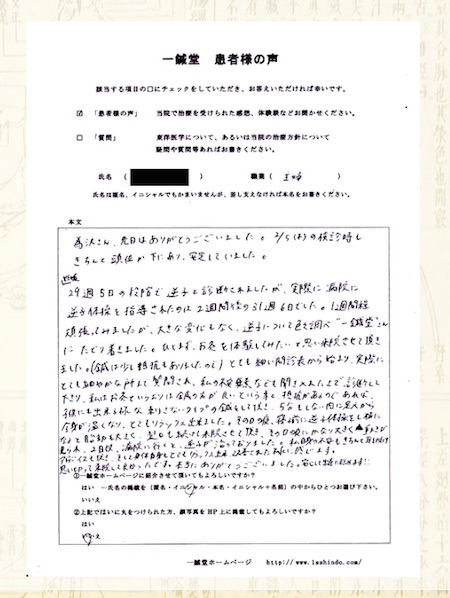 一鍼堂 患者様の声
該当する項目の□にチェックをしていただき、お答えいただければ幸いです。
☑ 「患者様の声」 当院で治療を受けられた感想、体験談などお聞かせください。
□ 「質問」 東洋医学について、あるいは当院の治療方針について
疑問や質問等あればお書きください。
氏名 ( ) 職業 ( 主婦 )
氏名は匿名、イニシャルでもかまいませんが、差し支えなければ本名をお書きください。
本文
為沢さん、先日はありがとうございました。2/5(木)の検診時も
きちんと頭位が下にあり、安定していました。
29週5日の検診で逆子と診断されましたが、実際に病院に
逆子体操を指導されたのは2週間後の31週6日でした。1週間程
頑張ってみましたが、大きな変化もなく、逆子について色々調べ"一鍼堂"さん
にたどり着きました。ひとまず、お灸を体験してみたいと思い来院させて頂き
ました。(鍼は少し抵抗もありましたので)とても細い問診表から始まり、実際に
とても細やかな所まで質問され、私の不安要素なども聞き入れた上で診断して
下さり、私にはお灸というよりは鍼の方が良いという事と、抵抗があるのであれば、
子供にも出来る様な刺さないタイプの鍼をして頂き、5分もしない内に足元から
全身が温くなり、とてもリラックス出来ました。その日の夜、寝前に逆子体操をし横に
なると胎動も大きく、翌日も続けて来院させて頂き、その日の夜にかなり大きく動きが
見られ、2日後、病院に行くと、逆子が治っておりました。
思い切って来院して良かったです。本当にありがとうございました。
①一鍼堂ホームページに紹介させて頂いてもよろしいですか？
はい ―氏名の掲載を(匿名・イニシャル・本名・イニシャル+名前)の中からひとつお選び下さい。
いいえ
②上記ではいに丸をつけられた方、顔写真をHP上に掲載してもよろしいですか？
はい
いいえ
一鍼堂ホームページ http://www.isshindo.com/